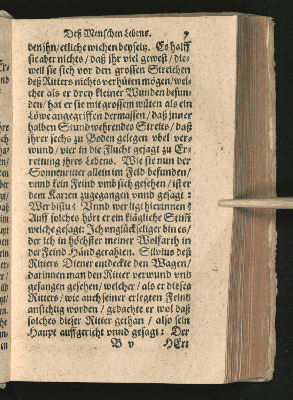 Deß Menschen Lebens. 9
den jhn / etliche wichen beyseitz. Es halff
sie aber nichts / daß ihr viel gewest / die-
weil sie sich vor den grossen Streichen
deß Ritters nichts verhüten mögen / wel-
cher als er drey kleiner Wunden befun-
den / hat er sie mit grossem wüten als ein
Löwe angegriffen dermassen / daß inner
halben Stund wehrender Streits / daß
jhrer sechs zu Boden gelegen vbel ver-
wund / vier in die Flucht gejagt zu Er-
rettung ihres Lebens. Wie sie nun der
Sonnenritter allein im Feld befunden /
vnnd kein Feind vmb sich gesehen / ist er
dem Karren zugegangen vnnd gesagt:
Wer bistu? Vnnd wer ligt hierinnen?
Auff solches hört er ein klägliche Stim̃
welche gesagt: Ich vnglückseliger bin es /
der ich in höchster meiner Wolfarth in
der Feind Händ gerahten. Silvius deß
Ritters Diener entdeckte den Wagen /
dat innen man den Ritter verwund vnd
gefangen gesehen / welcher / als er dieses
Ritters / wie auch seiner erlegten Feind
ansichtig worden / gedachte er wol daß
solches dieser Ritter gethan / also sein
Haupt auffgericht vnnd gesagt: Der
B v HErr